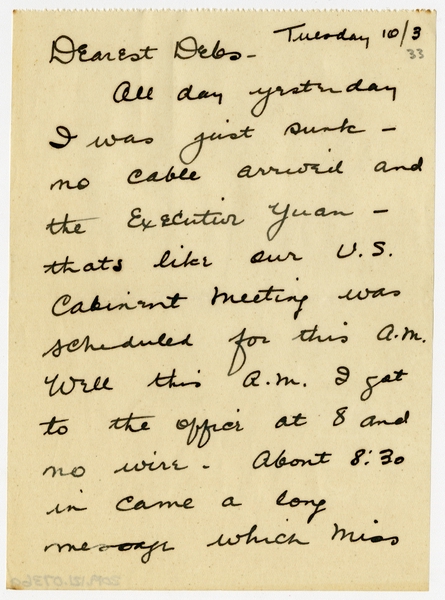 Tuesday 10/3
33
Dearest Debs-
All day yesterday
I was just sunk -
no cable arrived and
the Executive Yuan -
thats like our U.S.
Cabinent Meeting was
scheduled for this A.M.
Well this A.M. I got
to the office at 8 and
no wire. About 8:30
in came a long
message which Miss